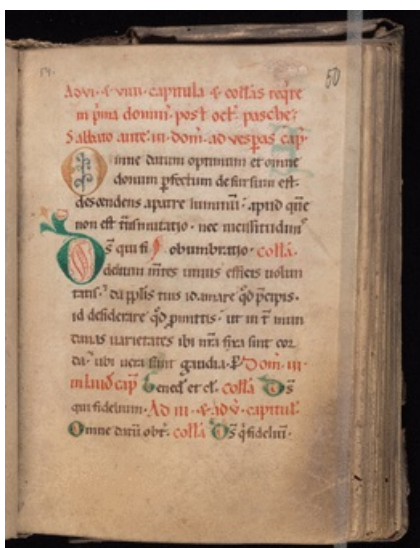 50
Ad vi· & viiii· capitula & collas reqre
in pma domini· post oct· pasche·
Sabbato ante· iii· dom· ad vespas cap·
Omne datum optimum et omne
donum pfectum desursum est·
descendens a patre luminu· aput que
non est tnsmutatio· nec uicissitudinis
obumbratio· colla·
Ds qui fi
delium mtes unius efficis uolun
tatis· da pplis tuis id amare qd pcipis·
id desiderare qd pmittis· ut int mun
danas uarietates ibi nra fixa sint cor
da· ubi uera sunt gaudia· P· Dom· iii·
in laud cap Bened et cl· colla Ds
qui fidelium· Ad iii· & ad v· capitul·
Omne datu obt· colla Ds q fideliu·